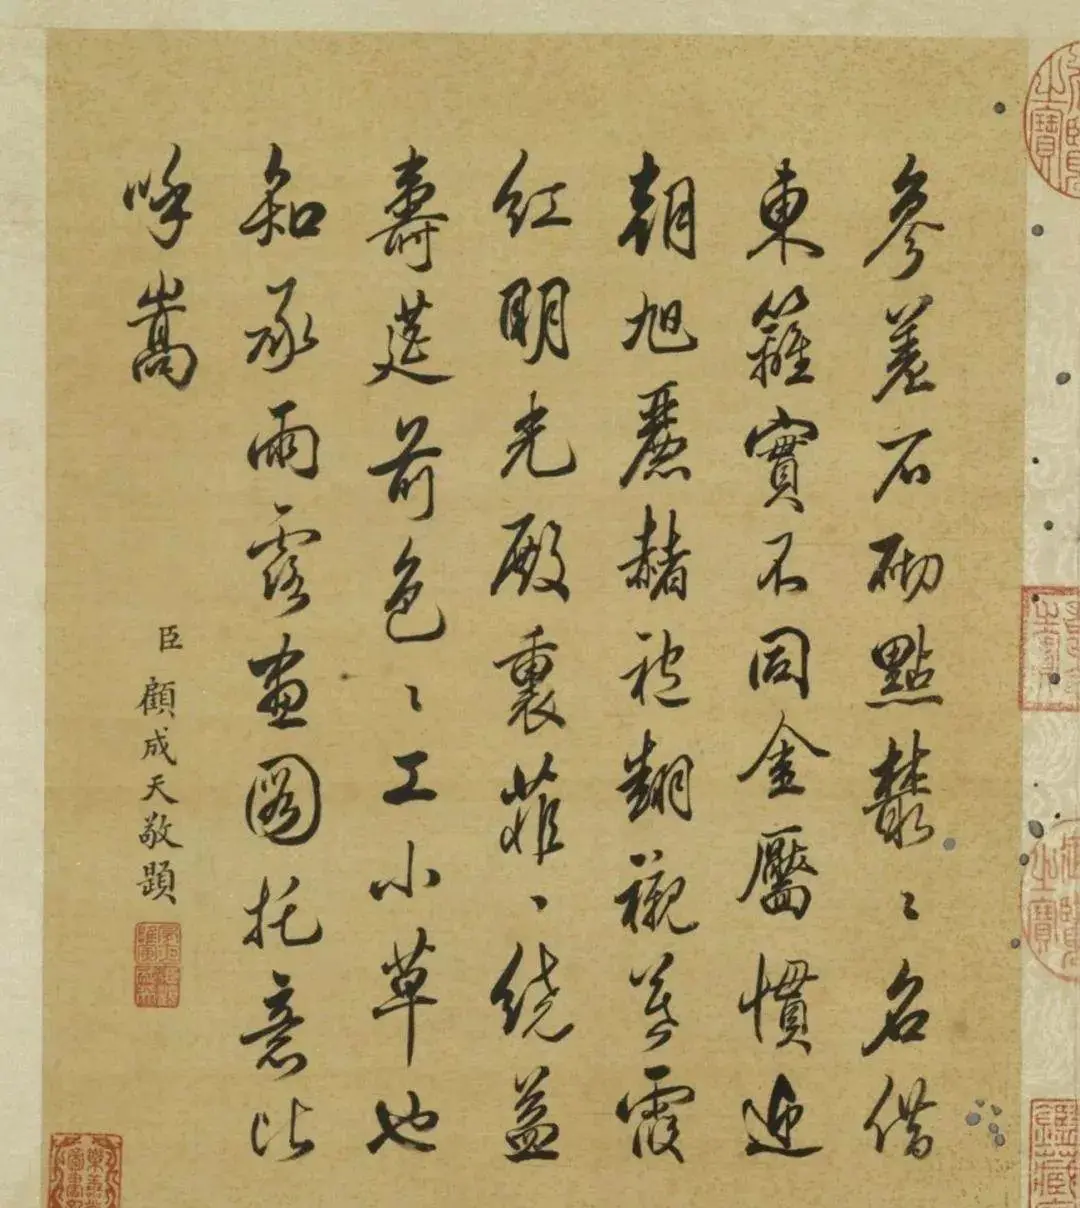 參差石砌點叢〻名借
東籬實不同金靨慣迎
朝旭麗赭袍翻襯暮霞
紅明光殿裏菲〻繞益
壽莚前色〻工小草也
知承雨露畫圖托意比
呼嵩
臣顧成天敬題